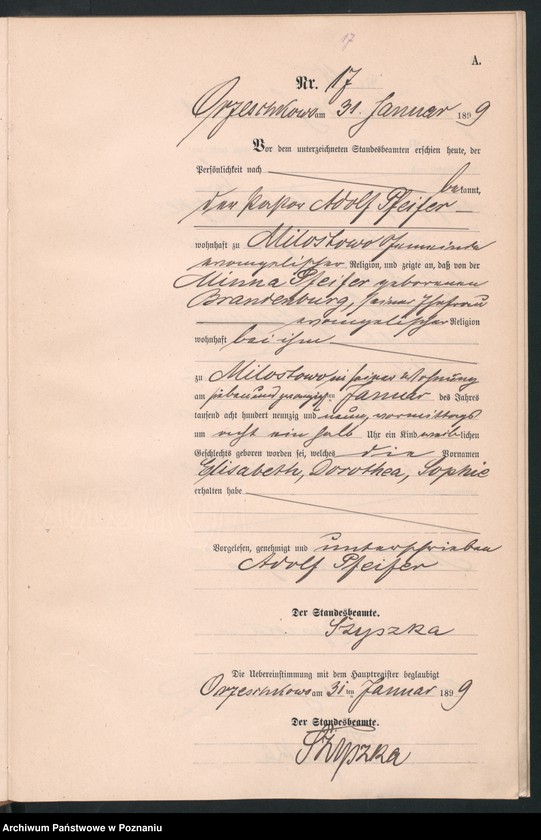 17
A.
Nr. 17
Orzeschkowo am 31. Januar 1899
Vor dem unterzeichneten Standesbeamten erschien heute, der
Persönlichkeit nach
bekannt,
der Pastor Adolf Pfeifer
wohnhaft zu Milostowo Gemeinde
evangelischer Religion, und zeigte an, daß von der
Minna Pfeifer geborenen
Brandenburg, seiner Ehefrau
evangelischer Religion
wohnhaft bei ihm
zu Milostowo in seiner Wohnung
am siebenundzwanzigten Januar des Jahres
tausend acht hundert neunzig und neun, vormittags
um acht ein halb Uhr ein Kind weiblichen
Geschlechts geboren worden sei, welches die Vornamen
Elisabeth, Dorothea, Sophie
erhalten habe
Vorgelesen, genehmigt und unterschrieben
Adolf Pfeifer
Der Standesbeamte.
Szyszka
Die Uebereinstimmung mit dem Hauptregister beglaubigt
Orzeschkowo am 31ten Januar 1899
Der Standesbeamte.
Szyszka
Archiwum Państwowe w Poznaniu